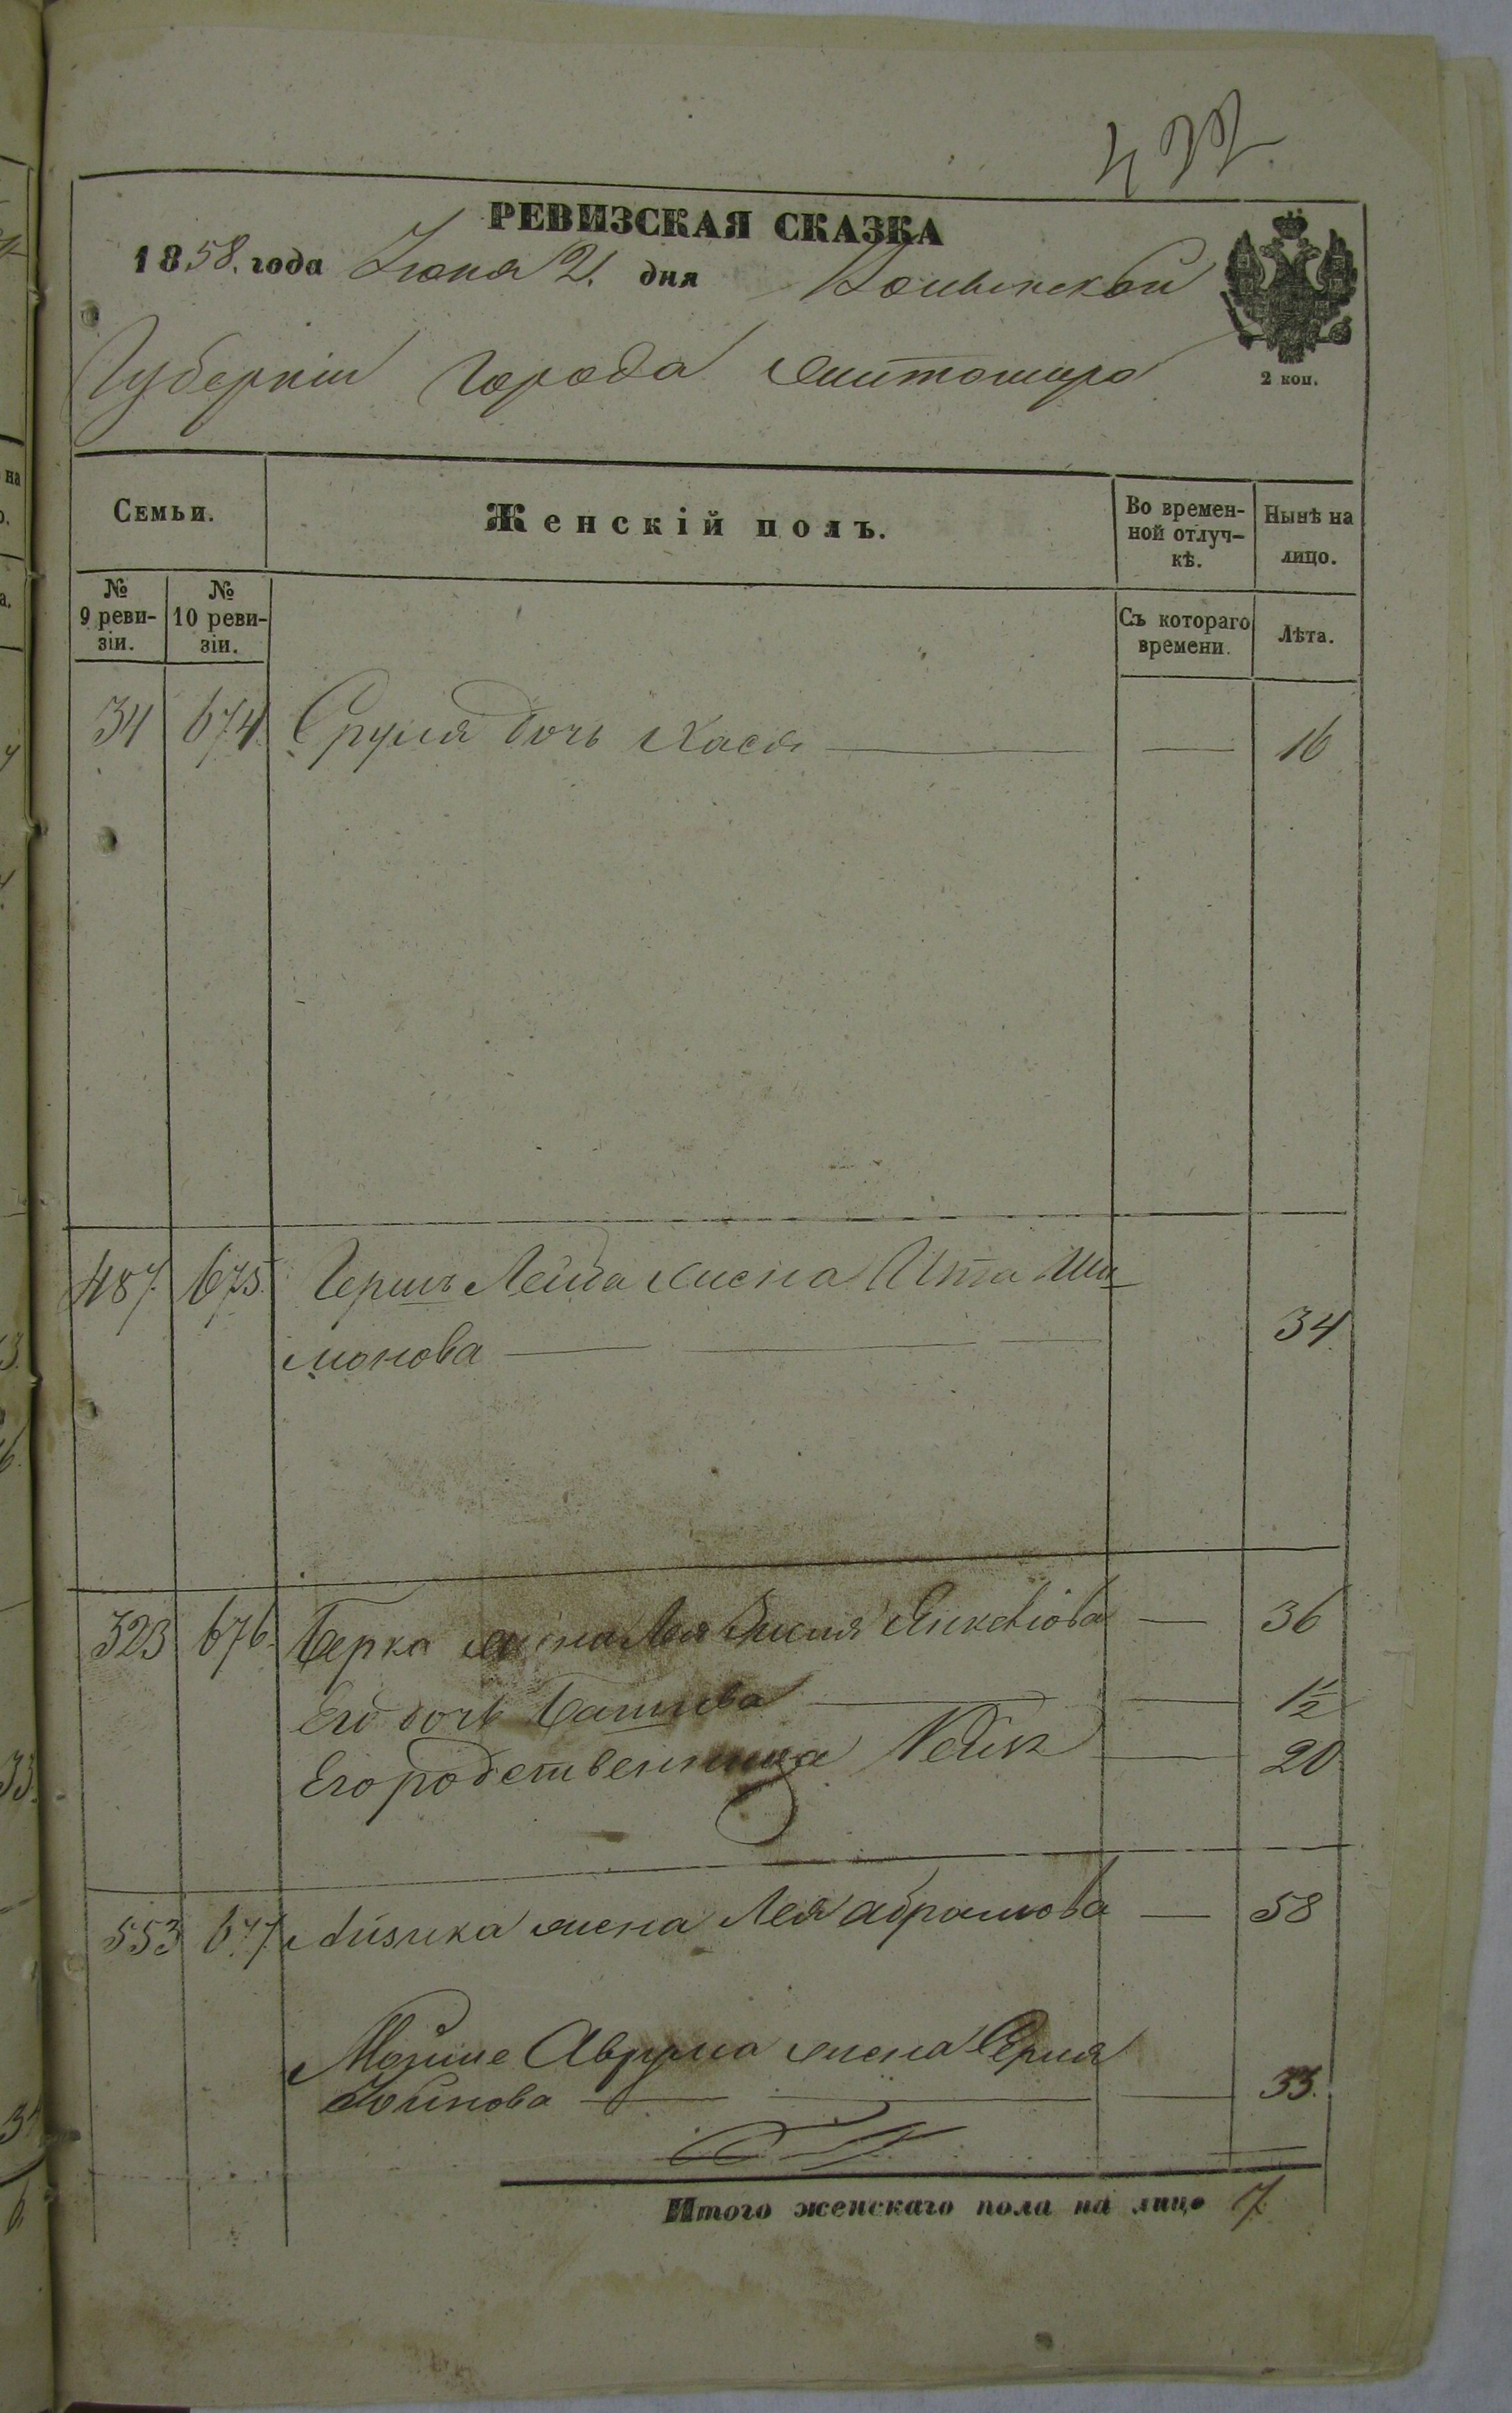 432
РЕВИЗСКАЯ СКАЗКА
1858. года Іюня 2. дня Волынской
Губерніи города Житомира
2 коп.
Семьи.
Женскій полъ.
Во времен-
ной отлуч-
кѣ.
Нынѣ на
лицо.
№
9 реви-
зіи.
№
10 реви-
зіи.
Съ котораго
времени.
Лѣта.
34 674. Сруля дочь Хася — — 16
487. 675. Гершъ Лейба жена Ита Ши
монова — 34
323 676. Берка жена Лея Янкелiова — 36
Его дочь Башива — — 1/2
Его родственница — 20
553 677. жена Лея Абрамова — 58
Мойше Аврума жена
— — 33.
Итого женскаго пола на лицо 7.